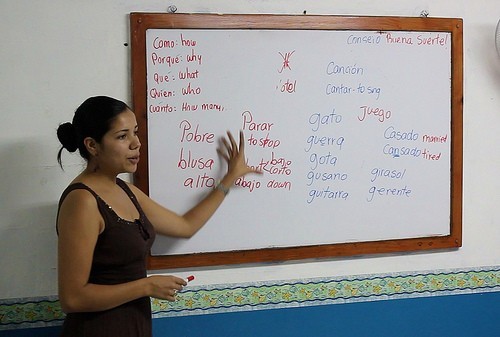 Como: how
Porqué: why
qué: what
Quien: who
Cuanto: How many,
Consejo Buena Suerte!
Canción
Cantar-to sing
Pobre
blusa
alto
Parar
to stop
bajo
corto
abajo down
gato
guerra
gota
gusano
guitarra
Juego
Casado married
Cansado tired
girasol
gerente